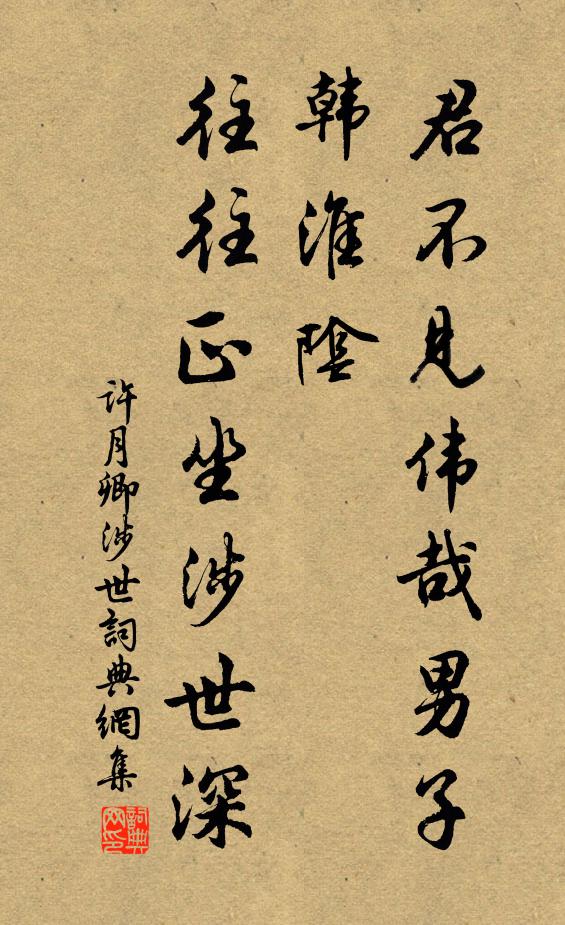 君不见伟哉男子
韩淮陰
往往正坐涉世深
許月卿涉世詞典網集
詞典网印